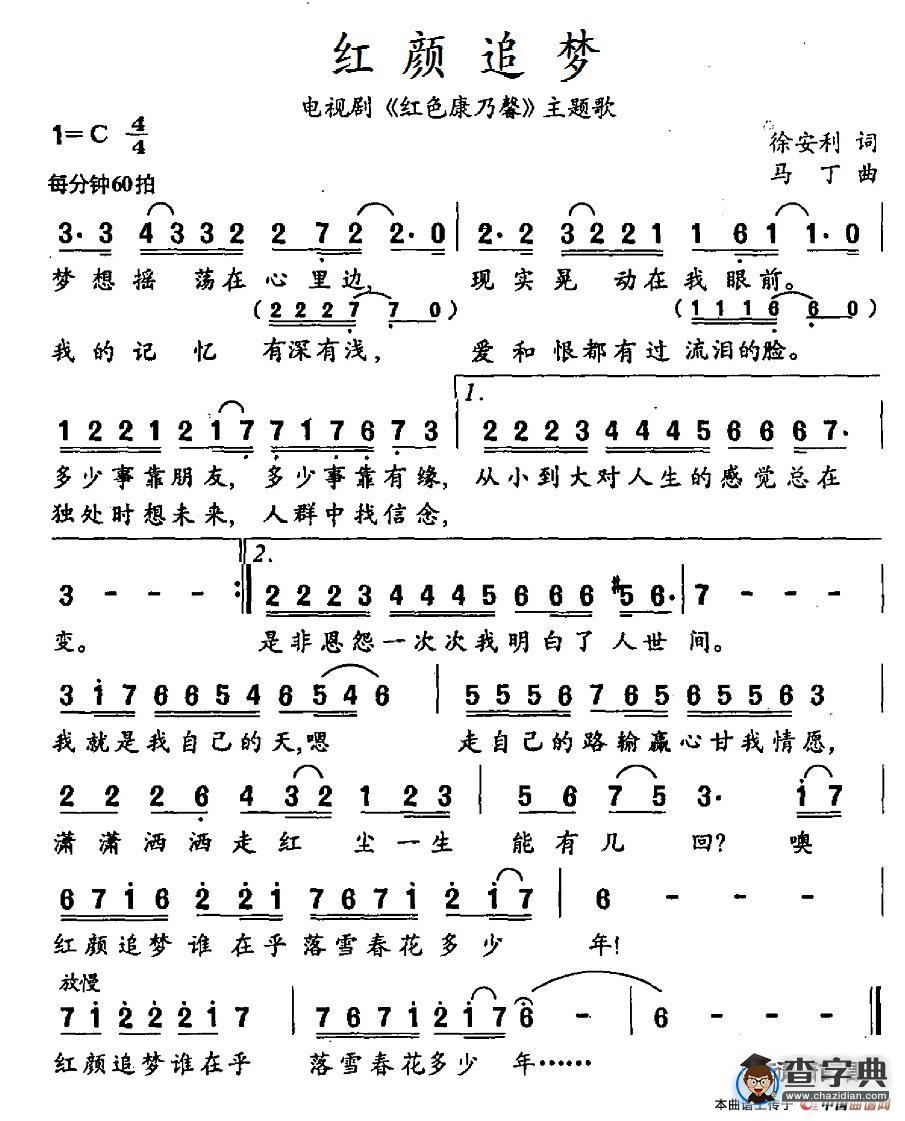 红颜追梦
电视剧《红色康乃馨》主题歌
1=C 4/4
徐安利 词
每分钟60拍
马丁 曲
3·3 4332 2 72 2·0 | 2·2 3221 1 61 1·0 |
梦想摇 荡在心里边, 现实晃 动在我眼前。
(2227 7 0) (1116 6 0)
我的记忆 有深有浅, 爱和恨都有过流泪的脸。
1.
1221 217 7176 73 | 2223 4445 666 67· |
多少事靠朋友, 多少事靠有缘, 从小到大对人生的感觉总在
独处时想未来, 人群中找信念,
2.
3 - - - :‖ 2223 4445 666 #56· | 7 - - - |
变。 是非恩怨一次次我明白了人世间。
3 i7 6654 6546 | 5556 765 6556 3 |
我就是我自己的天,嗯 走自己的路输赢心甘我情愿,
2 2 26 4 32 1 23 | 56 75 3· i7 |
潇潇洒洒走红 尘一生 能有几 回? 噢
671̇6 2̇ 2̇i 767i 2̇i7 | 6 - - - |
红颜追梦谁在乎落雪春花多少 年!
放慢
7i 2̇2̇ 2̇i7 | 767i 2̇i7 6 - | 6 - - - ‖
红颜追梦谁在乎 落雪春花多少 年……
查字典
www.chazidian.com
本曲谱上传于 中国曲谱网